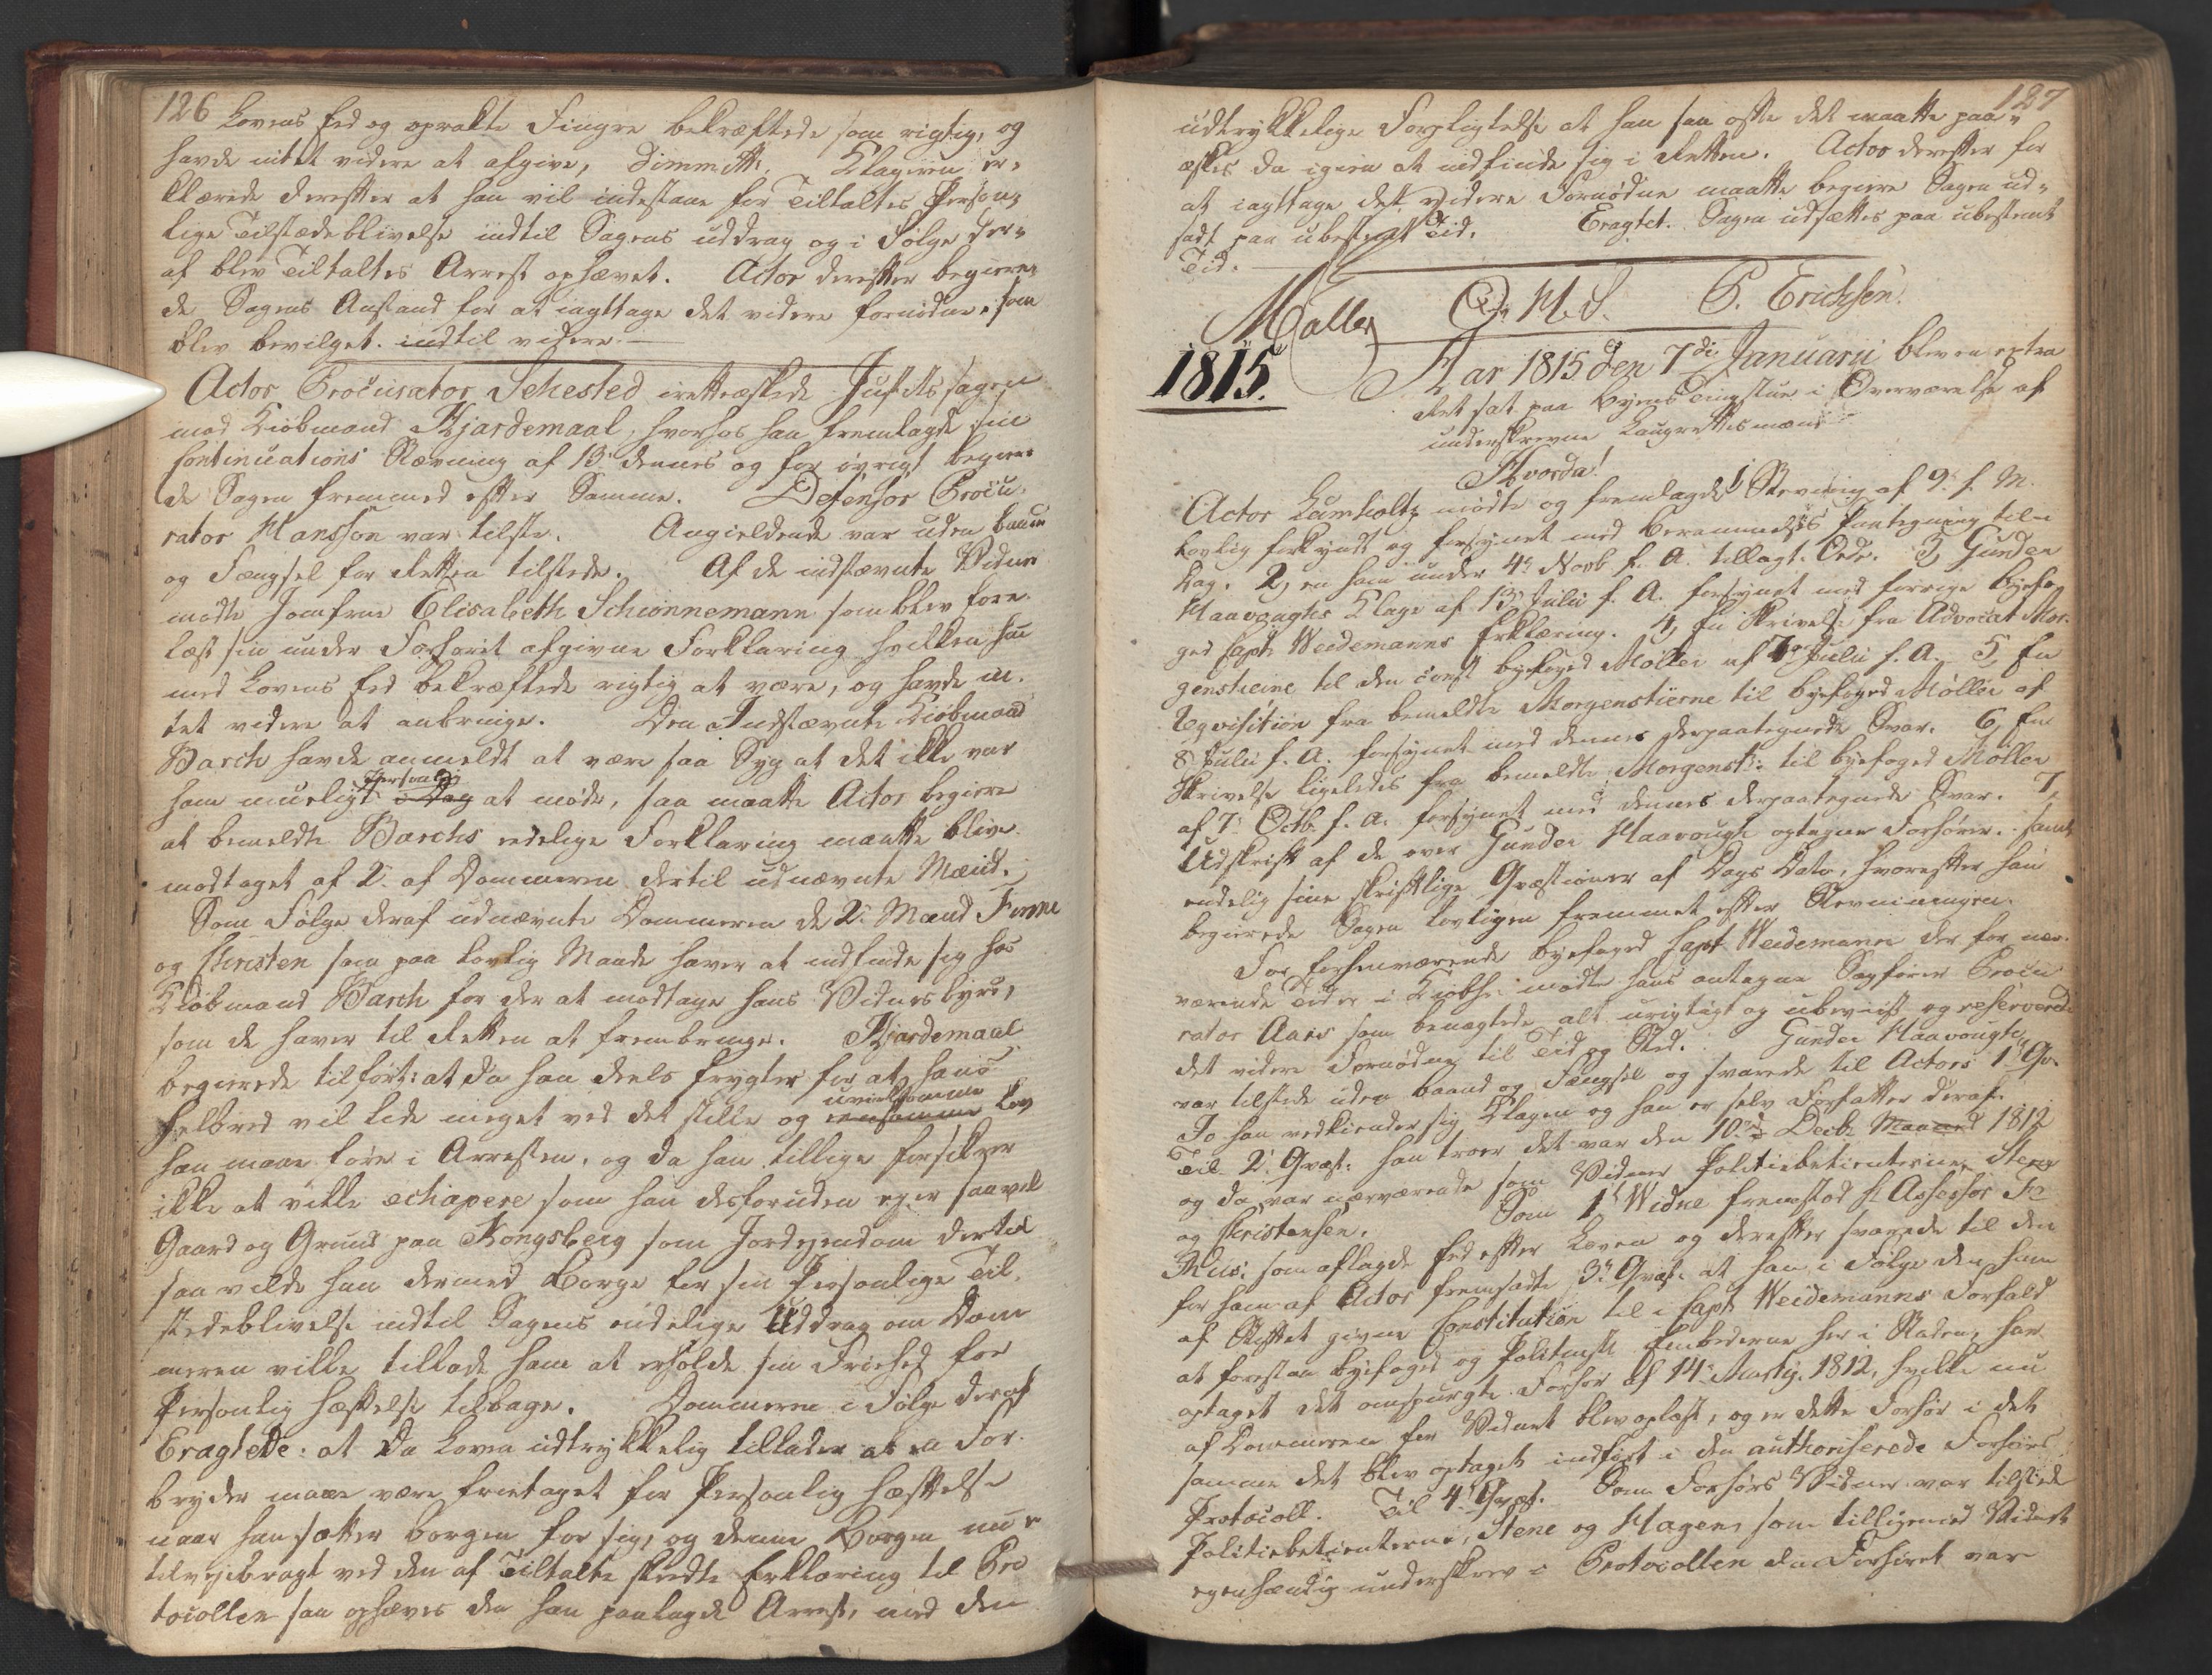 126
Lovens Eed og oprakte Fingre bekræftede som rigtig, og
havde intet videre at afgive, Dimmitt. Klageren er-
klærede derefter at han vil indestaae for Tiltaltes Person-
lige Tilstædeblivelse indtil Sagens uddrag og i Følge der-
af blev Tiltaltes Arrest ophævet. Actor derefter begiere-
de Sagens Anstand for at iagttage det videre fornødne, som
blev bevilget indtil videre.
Actor Procurator Sehested irettæskede Justitssagen
mod Kiøbmand Hjardemaal, hvorhos han fremlagde sin
Continuations Stævning af 13 dennes og for øvrigt begiere-
de Sagen fremmed efter Samme. Defensor Procu-
rator Hansson var tilstæ. Angieldende var uden baand
og Fængsel for Retten tilstede. Af de indstævnte Vidner
mødte Jomfrue Elisabeth Schiønnemann som blev fore-
læst sin under Forhøret afgivne Forklaring hvilken hun
med Lovens Eed bekræftede rigtig at være, og havde in-
tet videre at anbringe. Den Indstævnte Kiøbmand
Barch havde anmeldt at være saa Syg at det ikke var
ham mueligt personlig i Dag at møde, saa maatte Actor begiere
at bemeldte Barchs eedelige Forklaring maatte blive
modtaget af 2 af Dommeren dertil udnævnte Mænd.
Som Følge deraf udnævnte Dommeren de 2 Mænd
og Christen som paa Lovlig Maade haver at indfinde sig hos
Kiøbmand Barch for der at modtage hans Vidnesbyrd,
som de haver til Retten at frembringe. Hjardemaal
begierede tilført: at da han deels frygter for at hans
Helbred vil lide meget ved det stille og uvirksomme eensomme Lev
han maae føre i Arresten, og da han tillige forsikrer
ikke at ville echapere som han desforuden eger saavel
Gaard og Grund paa Kongsberg som Jordejendom dertil
saa vilde han dermed Borge for sin Personlige Til-
stedeblivelse indtil Sagens endelige Uddrag om Dom
meren ville tillade ham at erholde sin Friehed for
Personlig Hæftelse tilbage. Dommeren i Følge deraf
Eragtede: at da Loven udtrykkelig tillader at en For-
bryder maae være frietaget for Personlig Hæftelse
naar han sætter borgen for sig, og denne Borgen nu er
tilvejebragt ved den af Tiltalte skeedte Erklæring til Pro
tocollen saa ophæves den ham paalagde Arrest, med den
127
udtrykkelige Forpligtelse at han saa ofte det maatte paa-
æskes da igien at indfinde sig i Retten. Actor derefter for
at iagttage det videre Fornødne maatte begiere Sagen ud-
sadt paa ubestemt Tid. Eragtet. Sagen udsættes paa ubestemt
Tid.
Møller O. M. S. P. Erichsen.
1815.
Aar 1815 den 7de Januarii blev en extra
Ret sat paa Byens Tingstue i Overværelse af
underskrevne Laugrettesmænd
Hvorda!
Actor Lumholtz mødte og fremlagde 1 Stevning af 9 f. M.
lovlig forkyndt og forsynet med Berammelses Paategning til
Dag. 2, en ham under 4 Novb. f. A. tillagt Ordr. 3, Gunder
Haavougtes Klage af 13 Julii f. A. forsynet med forrige Byefo
ged Capt. Weidemanns Erklæring. 4, En Skrivelse fra Advocat Mor-
genstierne til den const. byefoged Møller af 7 Julii f. A. 5, En
Reqvisition fra bemeldte Morgenstierne til byefoged Møller af
8 Julii f. A. forsynet med dennes derpaategnede Svar. 6, En
Skrivelse ligeledes fra bemeldte Morgenst: til byefoged Møller
af 7 Octb. f. A. forsynet med dennes derpaategnede Svar. 7,
Udskrift af de over Gunder Haavougt optagne Forhører. samt
endelig sine skriftlige Qvæstioner af Dags Dato, hvorefter han
begierede Sagen lovligen fremmet efter Stevningen.
For forhenværende byefoged Capt. Weidemann der for nær-
værende Tid er i Kiøbh: mødte hans antagne Sagfører Procu
rator Aars som benægtede alt urigtigt og ubeviist og reserverede
det videre Fornødne til Tid og Sted. Gunder Haavougte
var tilstede uden baand og Fængsel og svarede til Actors 1 Qv.
Jo han vedkiender sig Klagen og han er selv Forfatter deraf.
Til 2 Qvæst: han troer det var den 10de Decbr Maaned 1812
og da var nærværende som Vidner Politiebetienterne Stene
og Christensen. Som 1t Widne fremstod H Assessor
som aflagde Eed efter Loven og derefter svarede til den
for ham af Actor fremsatte 3 Qvæst. at han i Følge den ham
af Stiftet givne Constitution til i Capt. Weidemanns Forfald
at forestaae byefoged og Politimst. Embederne her i Staden, har
optaget det omspurgte Forhør af 14 1812, hvilke nu
af Dommeren for Vidnet blev oplæst, og er dette Forhør i det
samme det blev optaget indført i den authoriserede Forhørs
Protocoll. Til 4 Qvæst. Som Forhørs Vidner var tilstede
Politiebetienterne, Stene og Hagen, som tilligemed Vidnet
egenhændig underskrev i Protocollen da Forhøret var